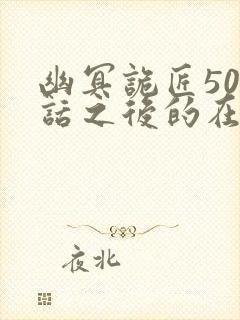 幽冥詭匠50
話之後的在
夜北